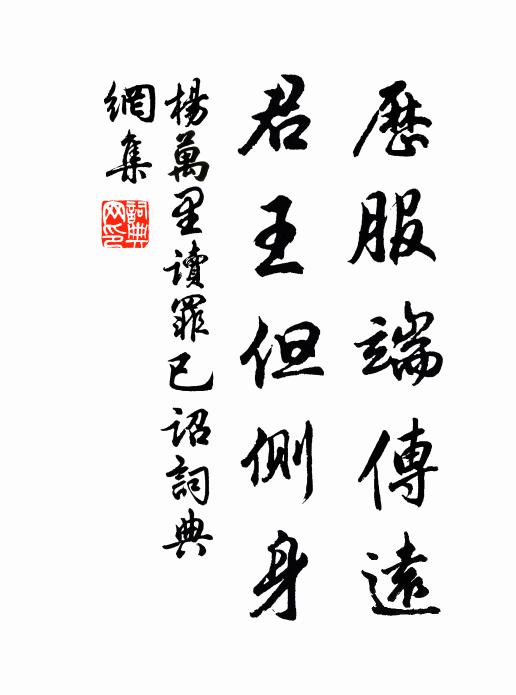 歷服端傳遠
君王但側身
楊萬里讀罪已詔詞典
網集
詞典網印